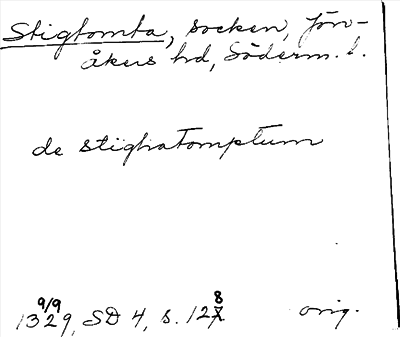 Stigtomta, socken, Jön-
åkers hd, Söderm. l.
de stighatomptum
9/9 1329, SD 4, s. 128 orig.